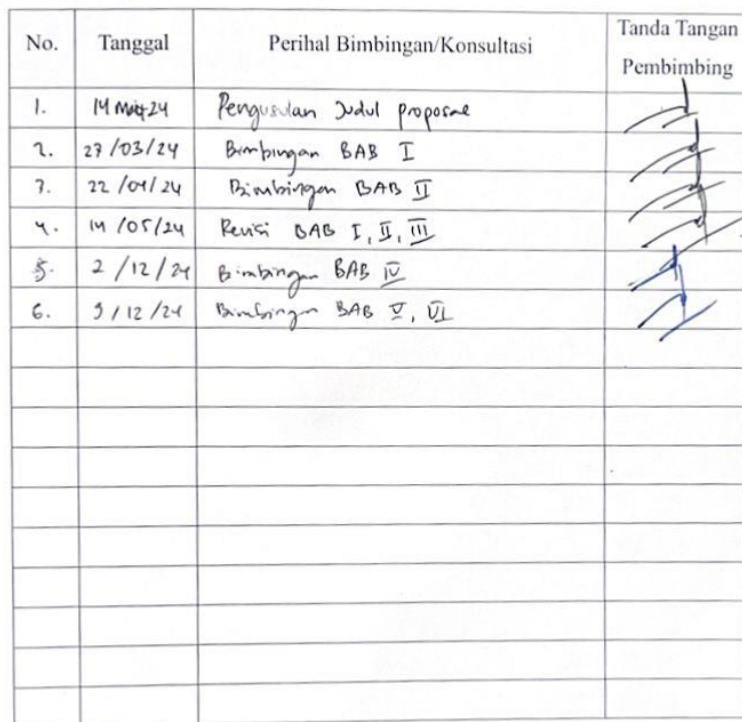 No. Tanggal Perihal Bimbingan/Konsultasi Tanda Tangan Pembimbing
1. 14 24 Pengusulan Judul proposal
2. 27/03/24 Bimbingan BAB I
3. 22/04/24 Bimbingan BAB II
4. 14/05/24 Revisi BAB I, II, III
5. 2/12/24 Bimbingan BAB IV
6. /12/24 Bimbingan BAB V, VI